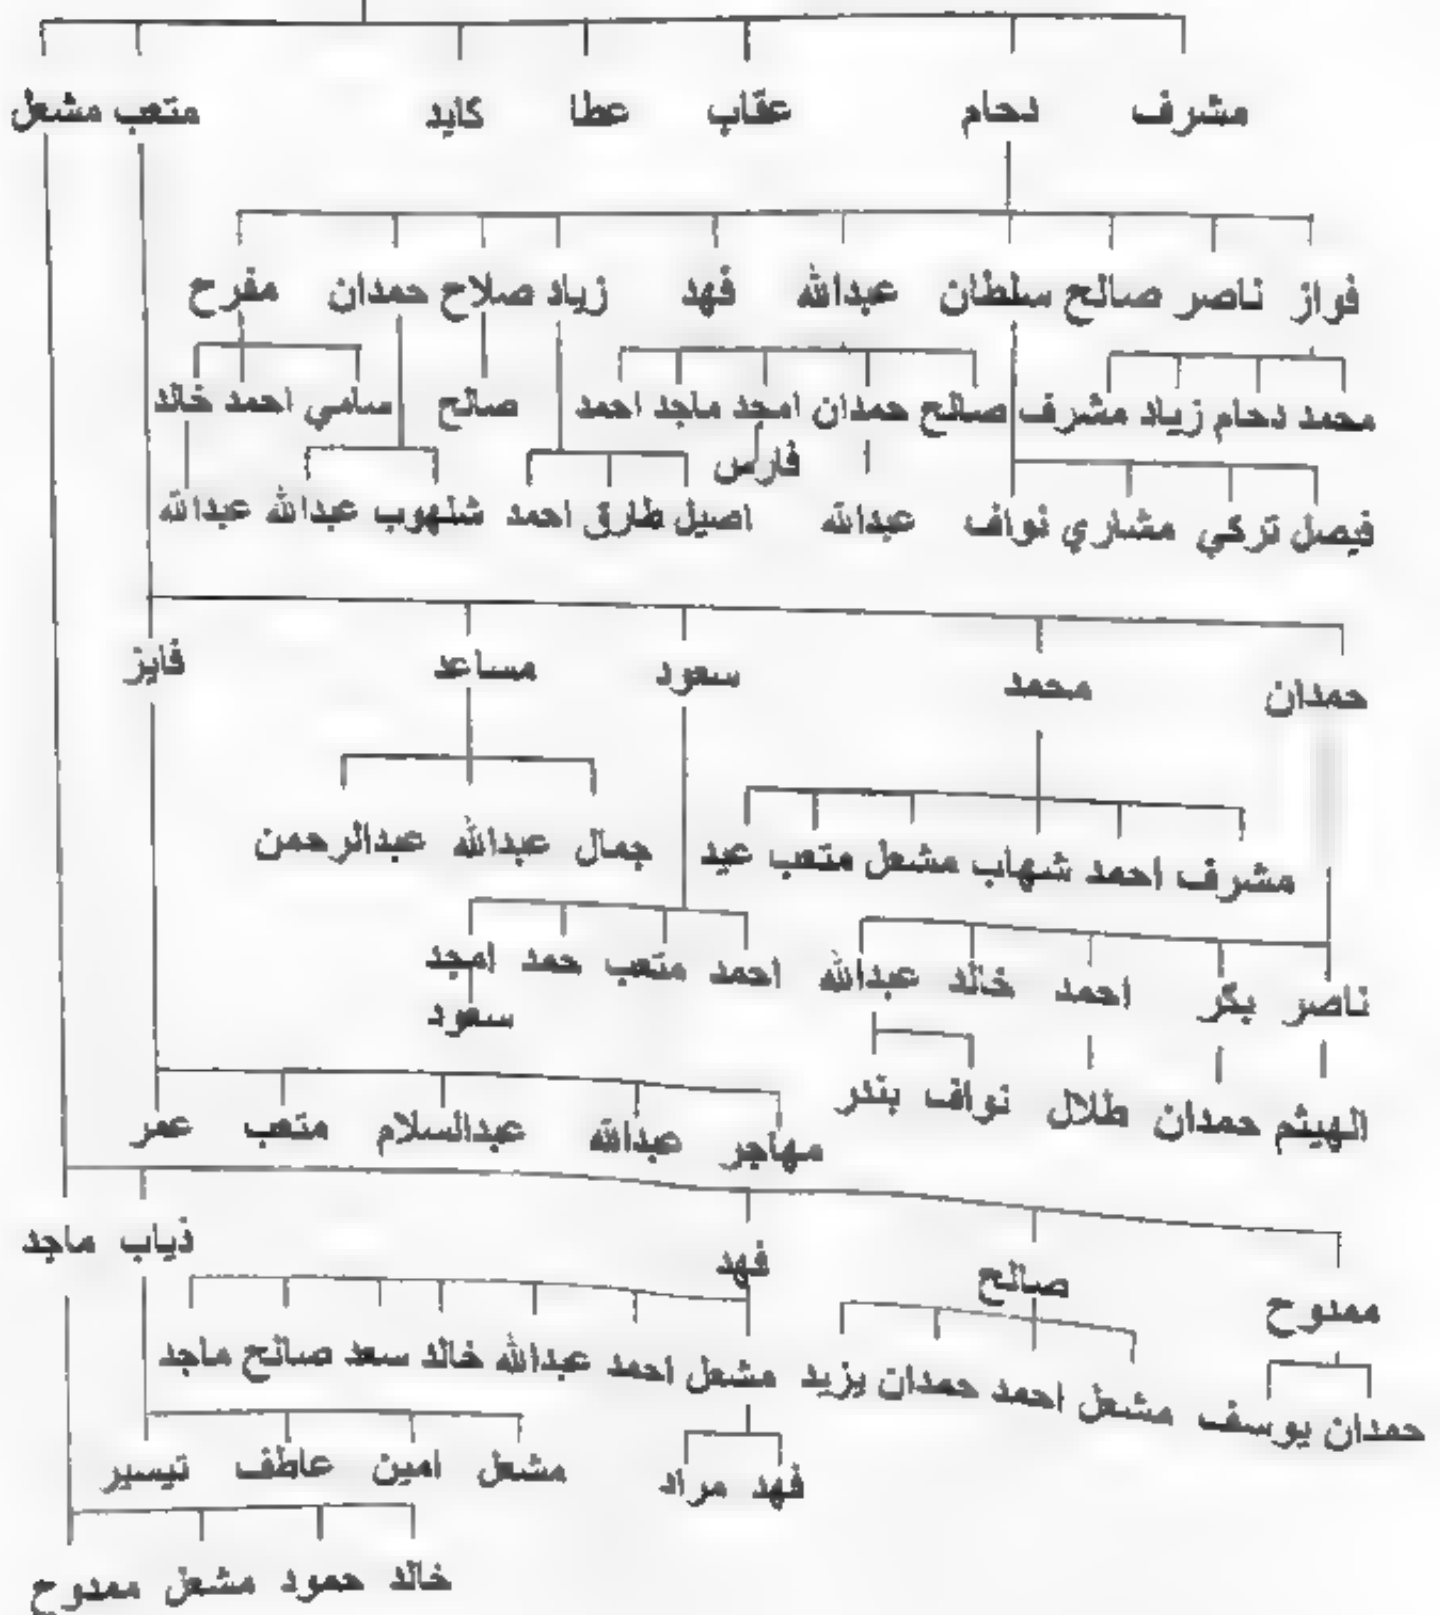 مشرف دحام عقاب عطا كايد متعب مشعل
فواز ناصر صالح سلطان عبدالله فهد زياد صلاح حمدان مفرح
محمد دحام زياد مشرف صالح حمدان امجد ماجد احمد صالح سامي احمد خالد
فارس
فيصل تركي مشاري نواف عبدالله اصيل طارق احمد شلهوب عبدالله عبدالله
حمدان محمد سعود مساعد فايز
مشرف احمد شهاب مشعل متعب عيد جمال عبدالله عبدالرحمن
ناصر بكر احمد خالد عبدالله احمد متعب حمد امجد
سعود
الهيثم حمدان طلال نواف بندر
مهاجر عبدالله عبدالسلام متعب عمر
ممدوح صالح فهد ذياب ماجد
حمدان يوسف مشعل احمد حمدان يزيد مشعل احمد عبدالله خالد سعد صالح ماجد
فهد مراد مشعل امين عاطف تيسير
خالد حمود مشعل ممدوح